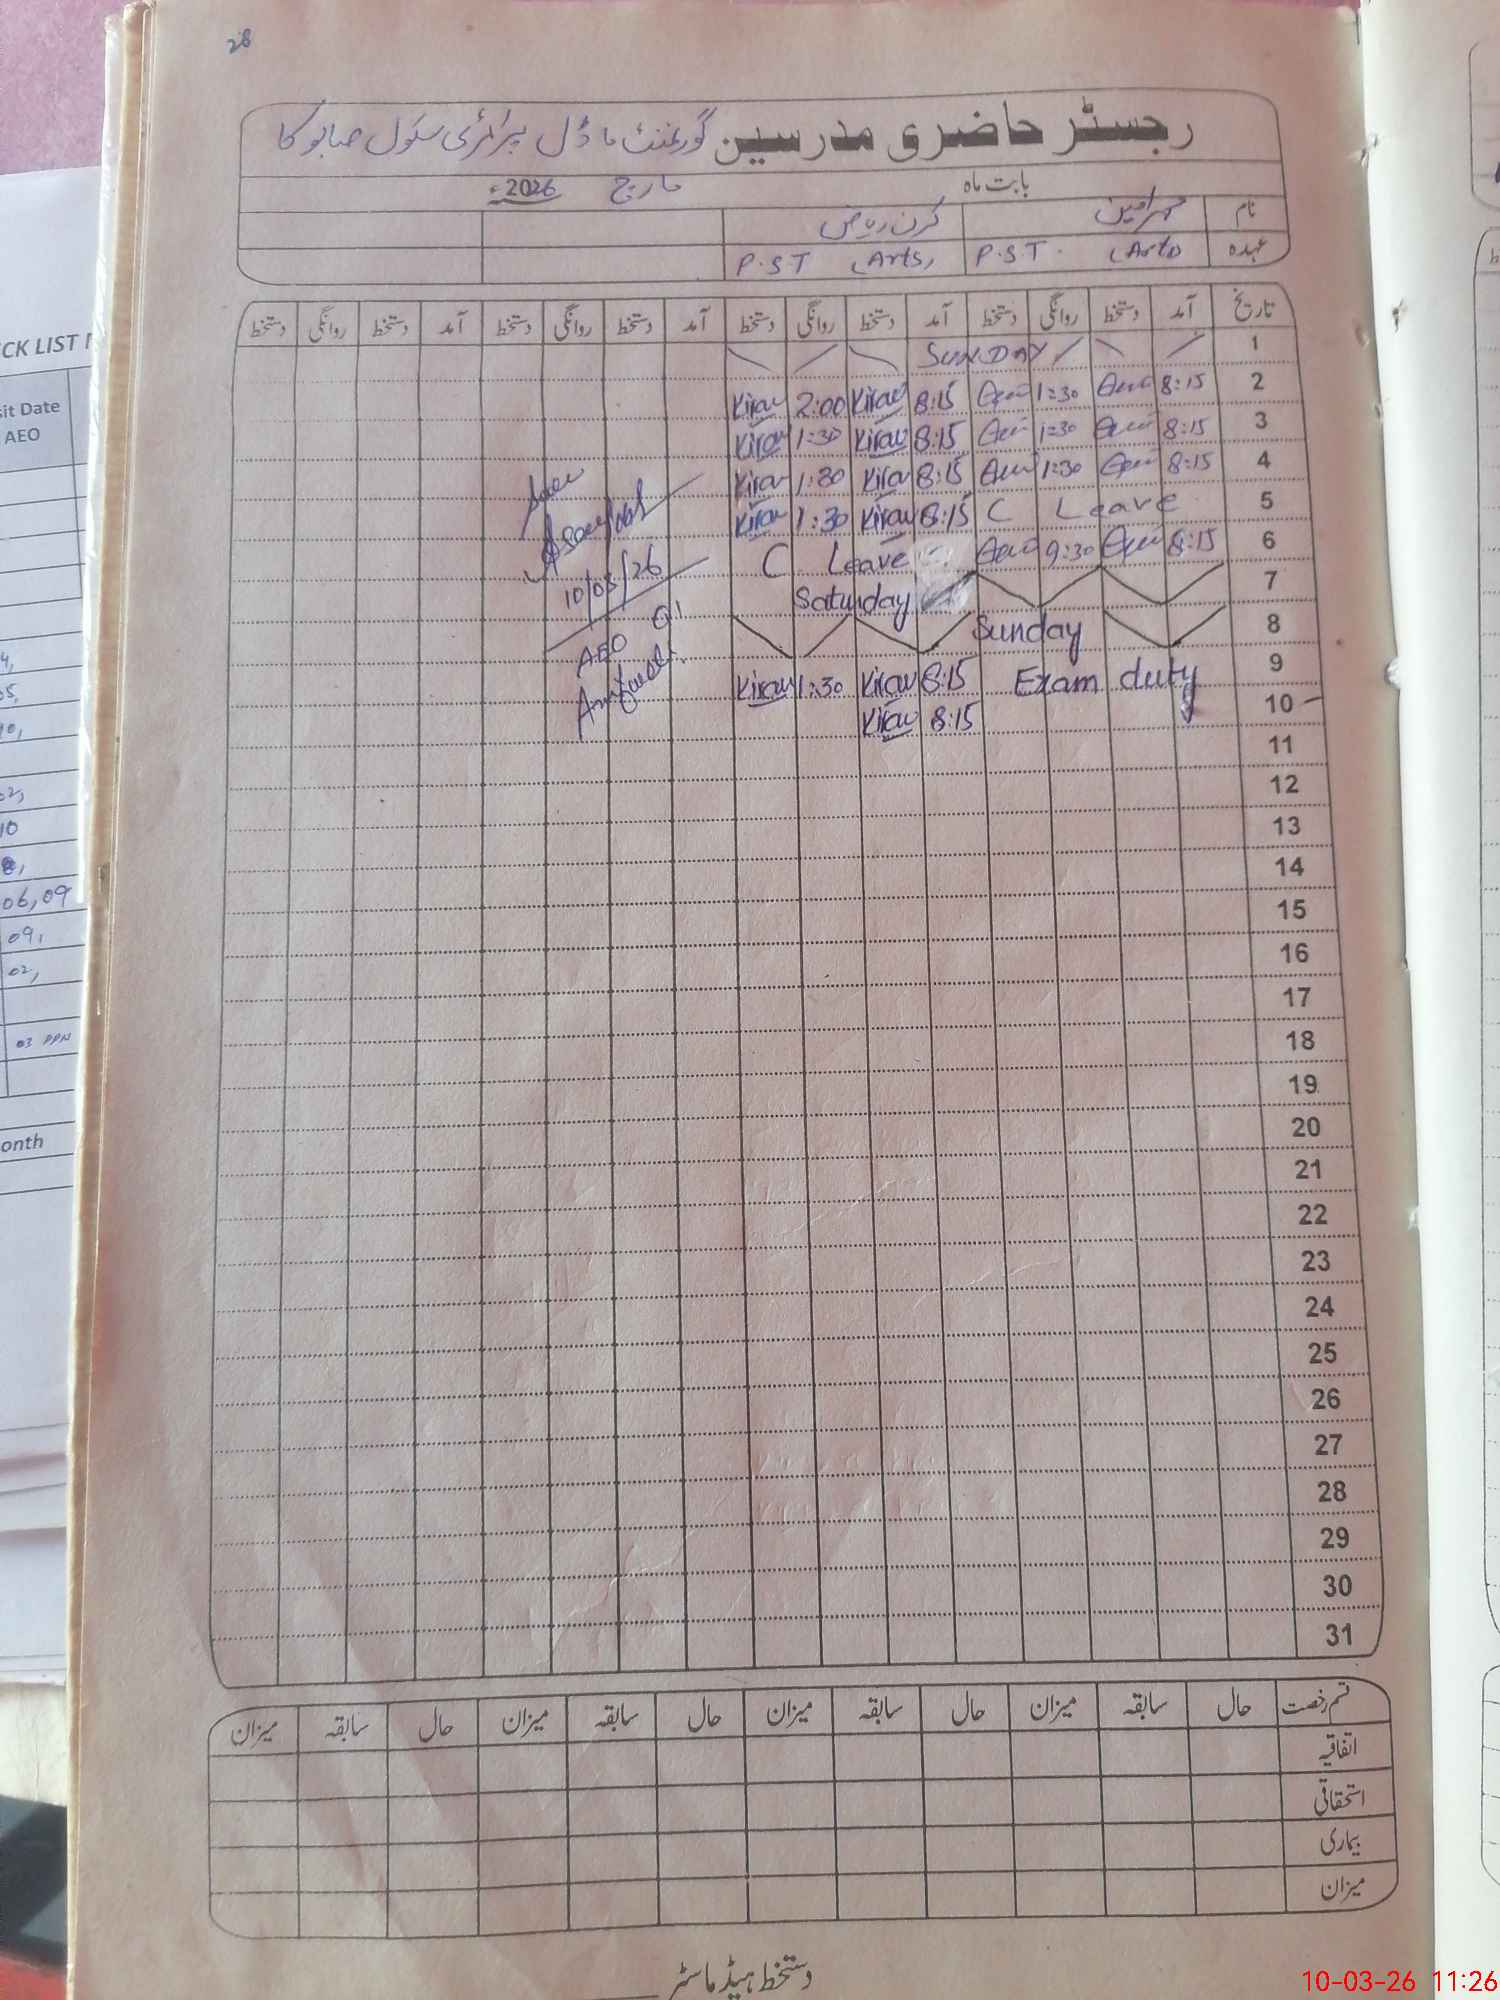 28
رجسٹر حاضری مدرسین گورنمنٹ ماڈل پرائمری سکول صابو کا
بابت ماہ مارچ 2026ء
نام مہر امین کرن ریاض
عہدہ P.S.T. (Arts) P.S.T (Arts)
تاریخ آمد دستخط روانگی دستخط آمد دستخط روانگی دستخط آمد دستخط روانگی دستخط آمد دستخط روانگی دستخط
1 SUNDAY
2 8:15 1:30 8:15 Kiran 2:00 Kiran
3 8:15 1:30 8:15 Kiran 1:30 Kiran
4 8:15 1:30 8:15 Kiran 1:30 Kiran
5 C Leave 8:15 Kiran 1:30 Kiran
6 8:15 9:30 C Leave
7 Saturday
8 Sunday
9 Exam duty 8:15 Kiran 1:30 Kiran
10 8:15 Kiran
10/03/26
AEO
11
12
13
14
15
16
17
18
19
20
21
22
23
24
25
26
27
28
29
30
31
قسم رخصت حال سابقہ میزان حال سابقہ میزان حال سابقہ میزان حال سابقہ میزان
اتفاقیہ
استحقاقی
بیماری
میزان
دستخط ہیڈ ماسٹر
CK LIST
sit Date
AEO
4,
05,
10,
02,
10
8,
06,09
09,
02,
03 PPN
onth
10-03-26 11:26